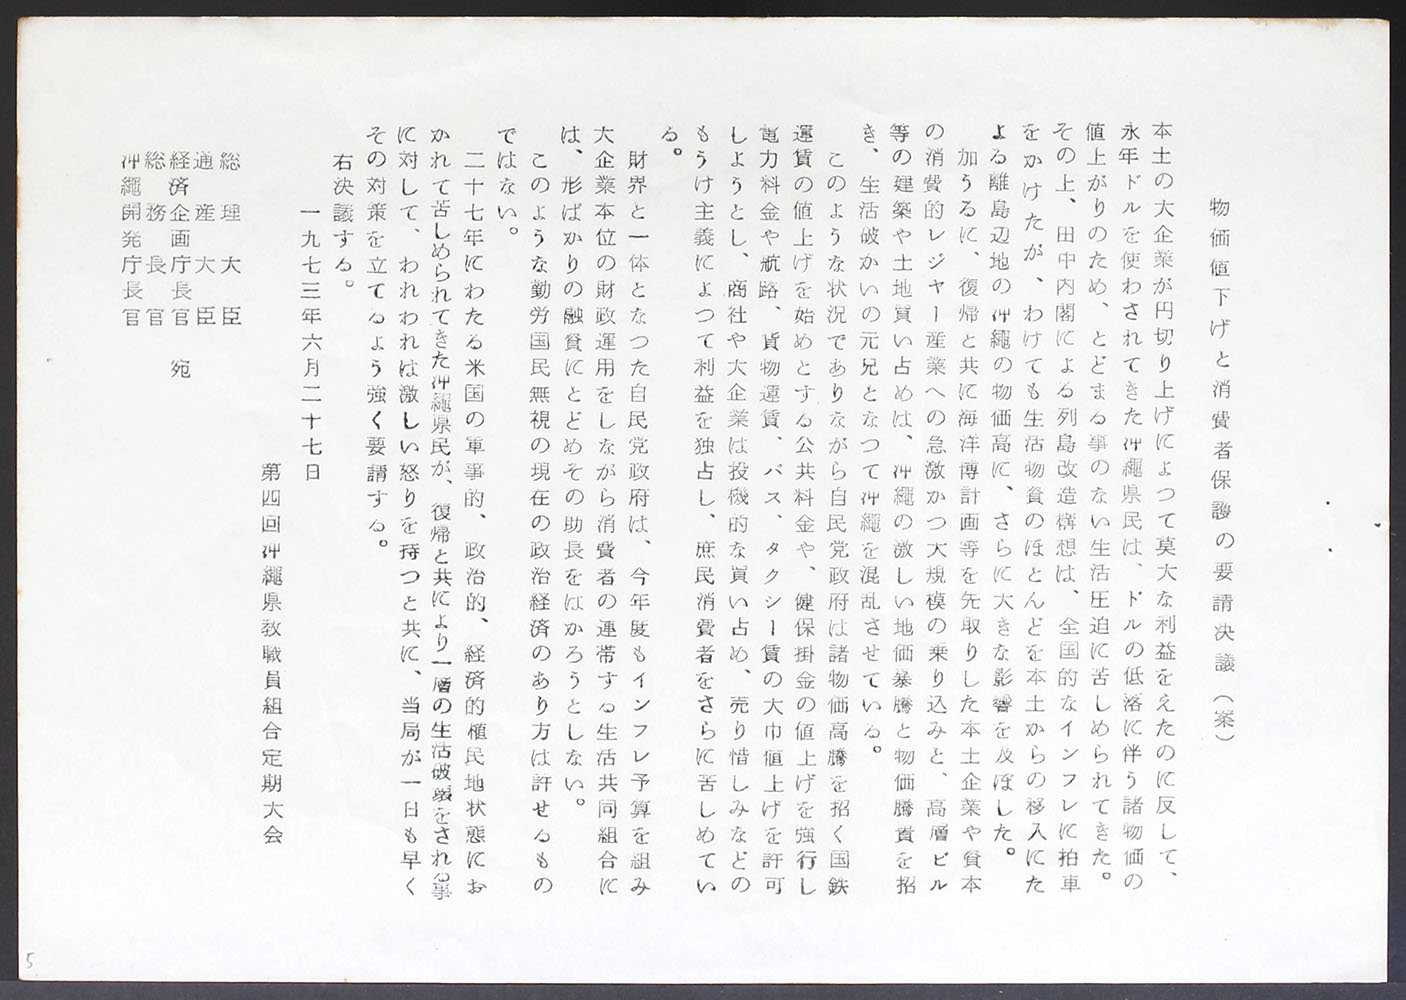 物価値下げと消費者保護の要請決議（案）
本土の大企業が円切り上げによつて莫大な利益をえたのに反して、
永年ドルを使わされてきた沖縄県民は、ドルの低落に伴う諸物価の
値上がりのため、とどまる事のない生活圧迫に苦しめられてきた。
その上、田中内閣による列島改造構想は、全国的なインフレに拍車
をかけたが、わけても生活物資のほとんどを本土からの移入にた
よる離島辺地の沖縄の物価高に、さらに大きな影響を及ぼした。
加うるに、復帰と共に海洋博計画等を先取りした本土企業や資本
の消費的レジャー産業への急激かつ大規模の乗り込みと、高層ビル
等の建築や土地買い占めは、沖縄の激しい地価暴騰と物価騰貴を招
き、生活破かいの元兇となつて沖縄を混乱させている。
このような状況でありながら自民党政府は諸物価高騰を招く国鉄
運賃の値上げを始めとする公共料金や、健保掛金の値上げを強行し
電力料金や航路、貨物運賃、バス、タクシー賃の大巾値上げを許可
しようとし、商社や大企業は投機的な買い占め、売り惜しみなどの
もうけ主義によつて利益を独占し、庶民消費者をさらに苦しめてい
る。
財界と一体となつた自民党政府は、今年度もインフレ予算を組み
大企業本位の財政運用をしながら消費者の連帯する生活共同組合に
は、形ばかりの融資にとどめその助長をはかろうとしない。
このような勤労国民無視の現在の政治経済のあり方は許せるもの
ではない。
二十七年にわたる米国の軍事的、政治的、経済的植民地状態にお
かれて苦しめられてきた沖縄県民が、復帰と共により一層の生活破壊をされる事
に対して、われわれは激しい怒りを持つと共に、当局が一日も早く
その対策を立てるよう強く要請する。
右決議する。
一九七三年六月二十七日
第四回沖縄県教職員組合定期大会
総理大臣
通産大臣
経済企画庁長官　宛
総務長官
沖縄開発庁長官
5